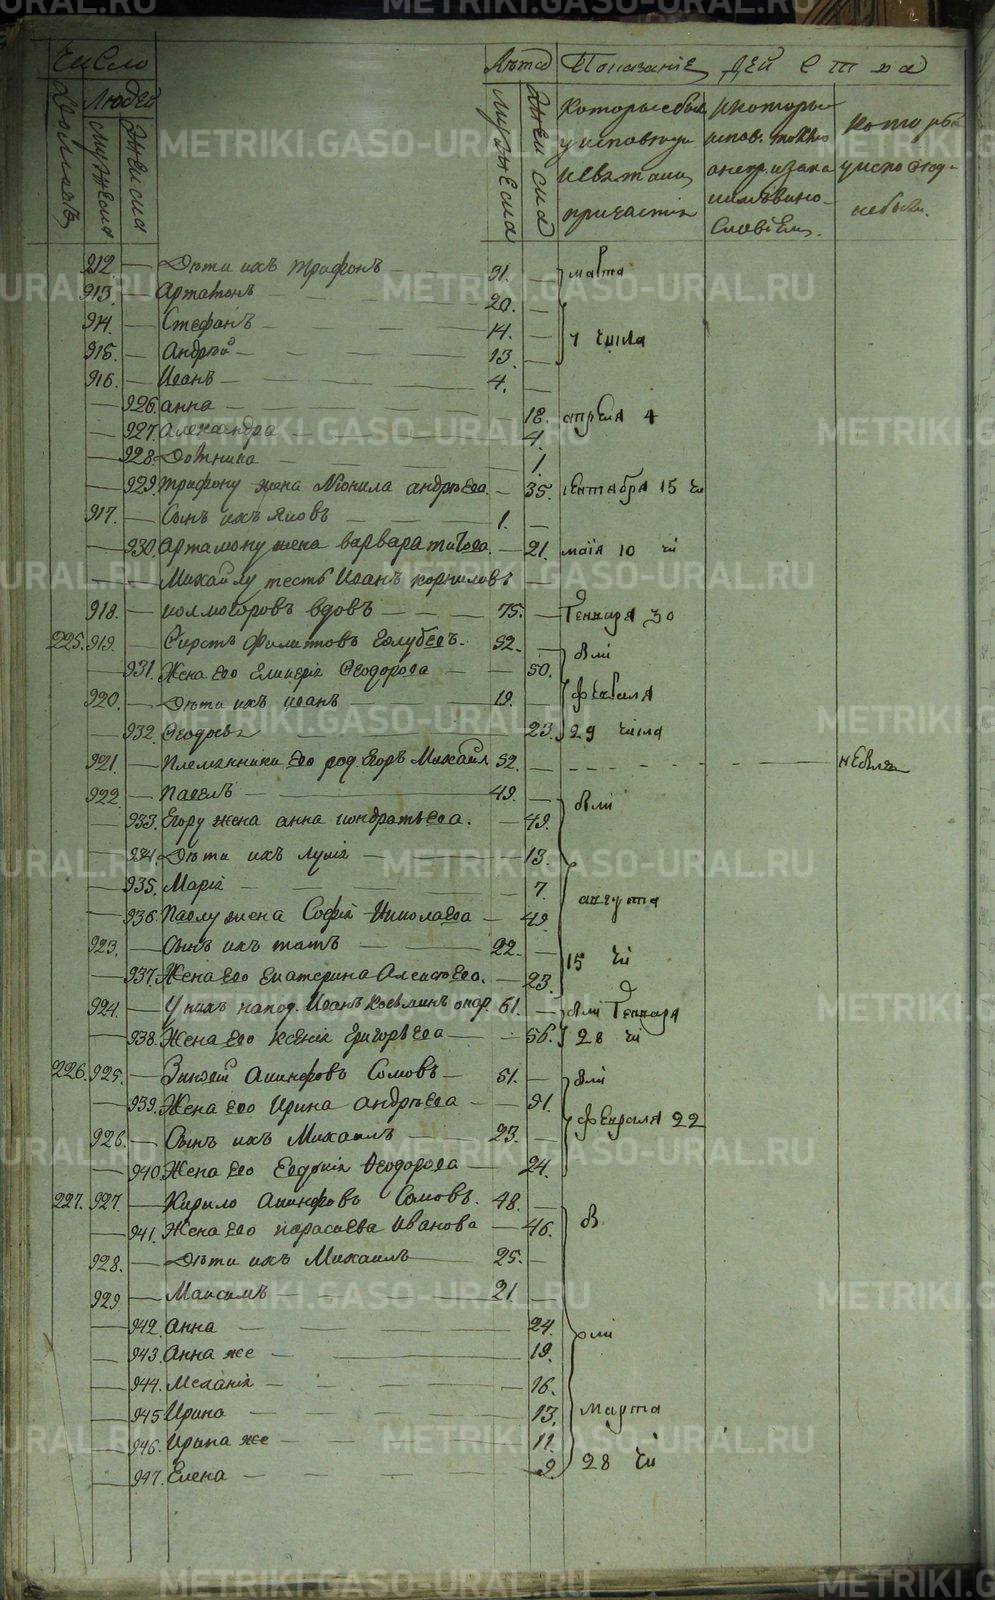 Число Лѣта Показанїе дѣйства
Дворовъ Людей
мужеска женска мужеска женска
которые были у исповѣди и святаго причастїя
и которые испов. токмо а не пр. и за какимъ винословїемъ
которые у исповѣди не были.
912. — Дѣти ихъ Трифонъ — 31. — марта
913. — Артамонъ — 20. —
914. — Стефанъ — 14. — 7 числа
915. — Андрей — 13. —
916. — Иванъ — 4. —
— 926. Анна — 18. апреля 4
— 927. Александра — 4.
— 928. Домника — 1.
— 929. Трифону жена Неонила Андрѣева. — 35. сентября 15 чи
917. — Сынъ ихъ Яковъ — 1. —
— 930. Артамону жена Варвара Титова. — 21. маїя 10 чи
— Михайлу тесть Иванъ Корниловъ —
918. — Колмогоровъ вдовъ — 75. — Генваря 30
225. 919. — Сирстъ Филиповъ Голубевъ. 52. — были
— 931. Жена его Гликерїя Ѳеодорова — 50.
920. — Дѣти ихъ Иванъ — 19. — февраля
— 932. Ѳеодосья — 23. 29 числа
921. — Племянники его род. Егоръ Михайл 52. — не были
922. — Павелъ — 49. — были
— 933. Егору жена Анна Кондратьева. — 49.
— 934. Дѣти ихъ — 13.
— 935. Марїя — 7. августа
— 936. Павлу жена Софїя Николаева — 49.
923. — Сынъ ихъ — 22. — 15 чи
— 937. Жена его Екатерина Алексѣева. — 23.
924. — У нихъ Иванъ Козьминъ 61. — были Генваря
— 938. Жена его Ксенїя Григорьева — 56. 28 чи
226. 925. — Зиновей Акинфовъ Сомовъ — 51. — были
— 939. Жена его Ирина Андрѣева — 51.
926. — Сынъ ихъ Михаилъ — 23. — февраля 22
— 940. Жена его Евдокїя Ѳеодорова — 24.
227. 927. — Кирило Акинфовъ Сомовъ. 48. — бы
— 941. Жена его Параскева Иванова — 46.
928. — Дѣти ихъ Михаилъ — 25. —
929. — Максимъ — 21. —
— 942. Анна — 24. ли
— 943. Анна же — 19.
— 944. Меланїя — 16.
— 945. Ирина — 13. марта
— 946. Ирина же — 11.
— 947. Елена — 9. 28 чи
METRIKI.GASO-URAL.RU